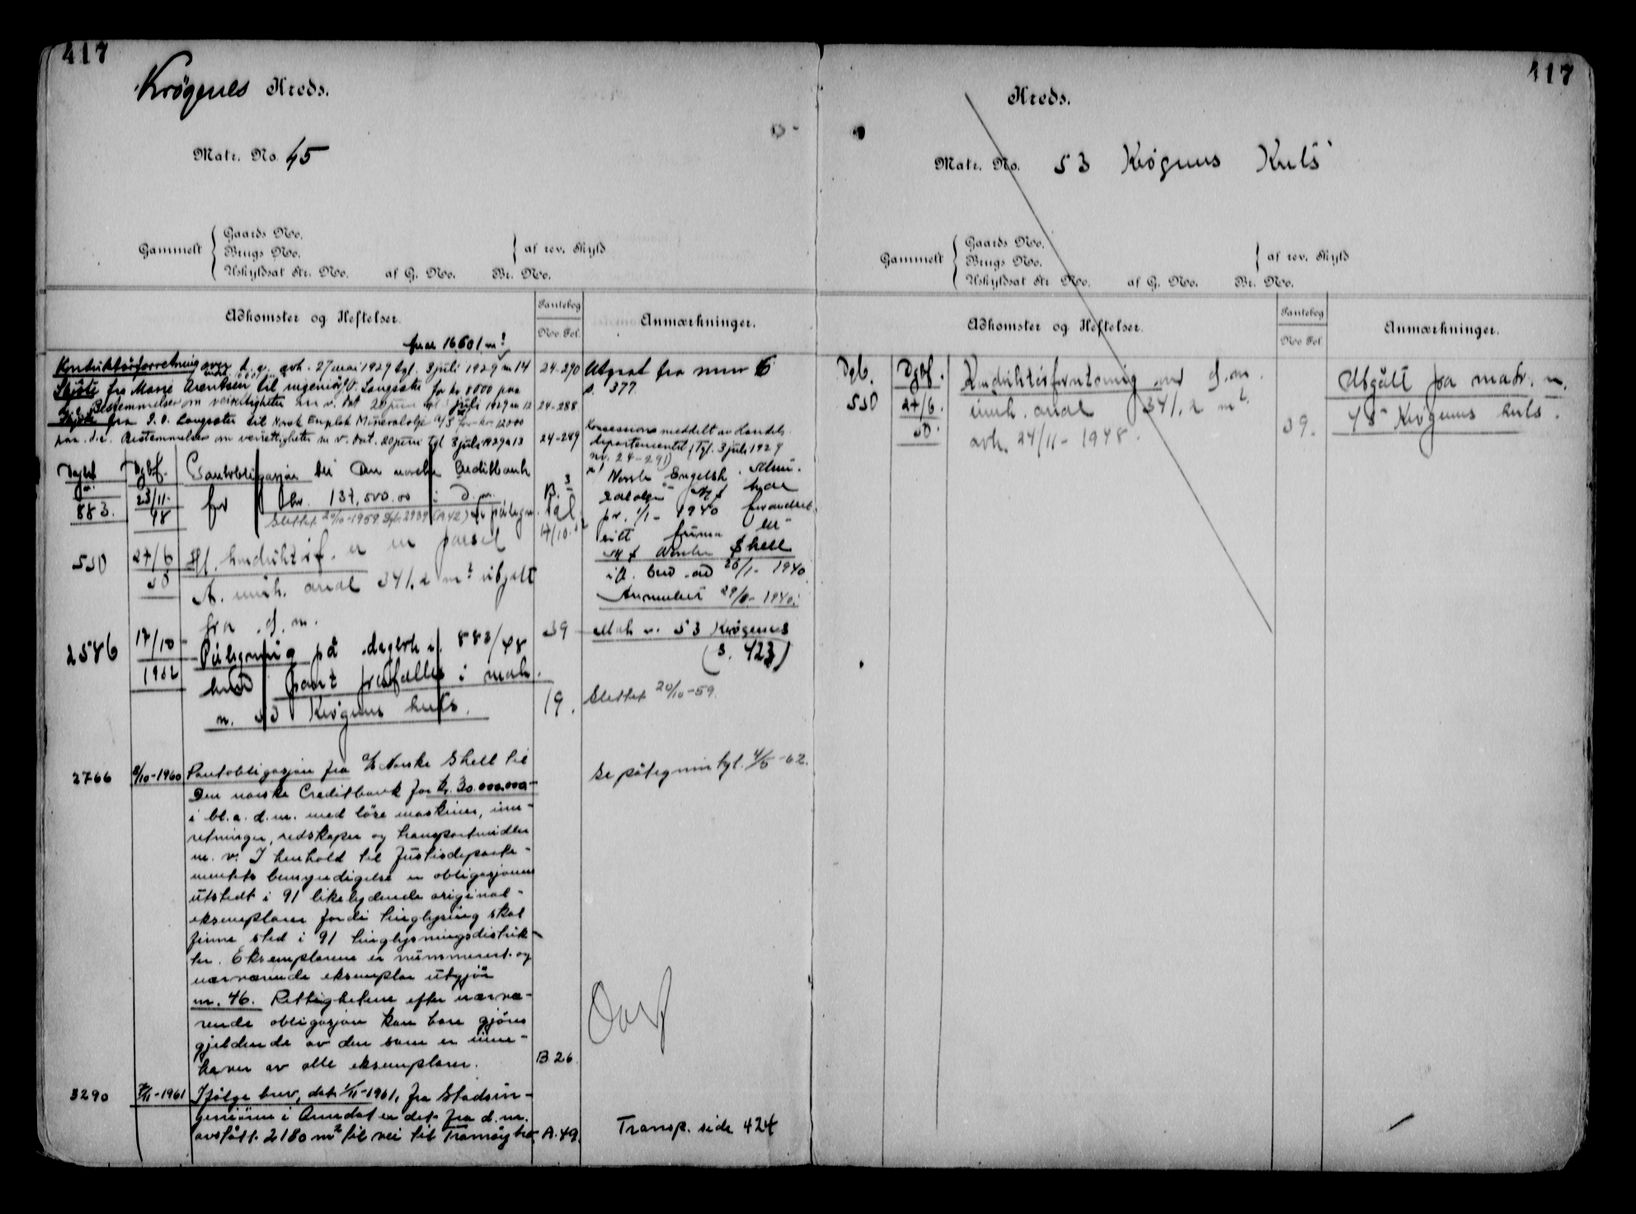 417
Krøgenes Kreds.
Matr. No. 45
Gammelt
Gaards No.
Brugs No.
Uskyldsat Str. No. af G. No. Br. No.
af rev. Skyld
Adkomster og Heftelser.
Pantebog
No. Fol.
Anmærkninger.
areal 16501 m²
Konduktørforretning over d. e. avh. 27 mai 1929 tgl. 3 juli 1929 n 14
24-290
Utgaat fra mnr 6
s. 377
Skjøte fra Marie Arentsen til ingeniør Langsæter for kr. 8000 paa
d. e. Bestemmelser om veirettigheter m. v. Dat. 20 juni tgl. 3 juli 1929 n 12
24-288
Skjøte fra J. O. Langsæter til Norsk Engelsk Mineralolje A/S for kr. 12000
paa d. e. Bestemmelser om veirettigheter m. v. Dat. 20 juni tgl 3 juli 1929 n 13
24-289
Konsession meddelt av Handels-
departementet (Tgl. 3 juli 1929
nr. 24-291)
Norsk Engelsk Mine-
ralolje A/S har
pr. 1/1-1940 forandret
sitt firma til
A/S Norske Shell
i fl. brev av 26/1-1940
Anmerket 29/1-1940.
Dagb. Dgbf.
883. 23/11-48
Pantobligasjon til Den norske Creditbank
for kr. 137,500.00 i d. m.
Slettet 20/10-1959 Dgb. 2939 (A42)
B. 3
17/10
550 27/6 50
Hl. konduktørf. er en parsel
A. innh. areal 341,2 m² utgått
fra d. m.
39
Matr. nr. 53 Krøgenes
(s. 423)
2586 17/10 1952
Påtegning på dagbok nr. 883/48
hvor pant frafalles i matr.
n. 53 Krøgenes huls.
19.
Slettet 20/10-59.
2766 /10-1960 Pantobligasjon fra A/S Norske Shell til
Den norske Creditbank for kr. 30.000.000-
i bl. a. d. m. med löse maskiner, inn-
retninger, redskaper og transportmidler
m. v. I henhold til Justisdeparte-
mentets bemyndigelse er obligasjonen
utstedt i 91 likelydende original-
eksemplarer fordi tinglysing skal
finne sted i 91 tinglysningsdistrik-
ter. Eksemplarene er nummerert og
nærværende eksemplar utgjör
nr. 46. Rettigheten efter nærvæ-
rende obligasjon kan bare gjöres
gjeldende av den som er inne-
haver av alle eksemplarer.
B 26.
Se påtegnin tgl. 4/5-62.
3290 /11-1961 Ifølge brev, dat. 1/11-1961, fra Stadsin-
geniören i Arendal er det fra d. m.
avstått 2180 m² til vei til Tromöy bro
A. 49.
Transp. side 424
417
Kreds.
Matr. No. 53 Krøgenes Huls
Gammelt
Gaards No.
Brugs No.
Uskyldsat Str. No. af G. No. Br. No.
af rev. Skyld
Adkomster og Heftelser.
Pantebog
No. Fol.
Anmærkninger.
Dgb. Dgbf.
550 27/6. 50.
Konduktørforretning over d. m.
innh. areal 341,2 m²
avh. 24/11-1948.
39.
Utgått fra matr. n.
45 Krøgenes huls.